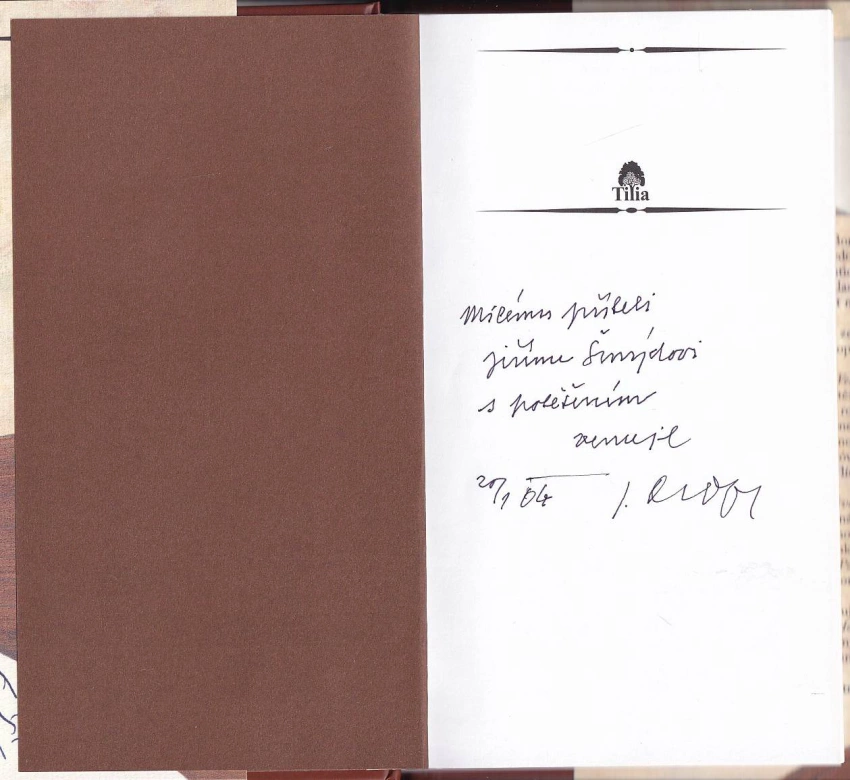 Tilia
Milému příteli
Jiřímu Šmýdovi
s potěšením
venuje
20/1 04
J.